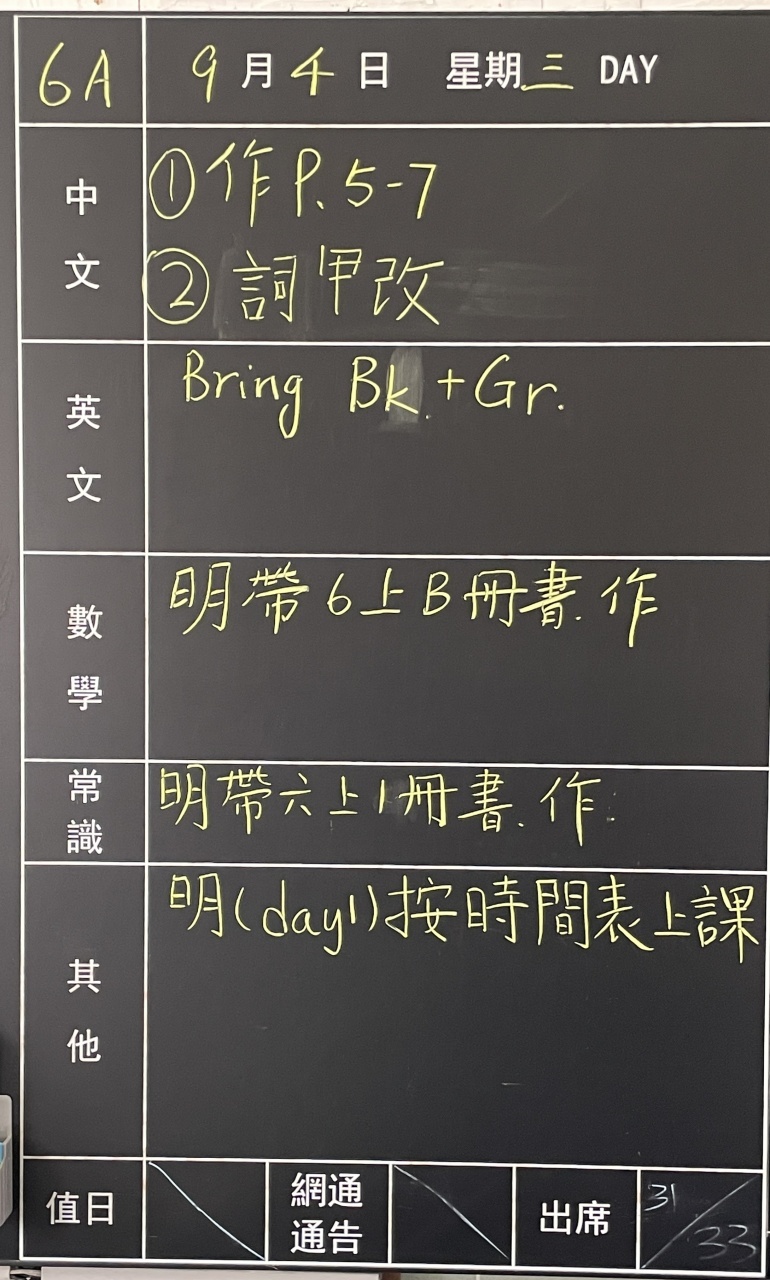 6A 9月4日 星期三 DAY
中文
①作P.5-7
②詞甲改
英文
Bring Bk.+Gr.
數學
明帶6上B冊書.作
常識
明帶六上1冊書.作
其他
明(day1)按時間表上課
值日
網通
通告
出席
31/33